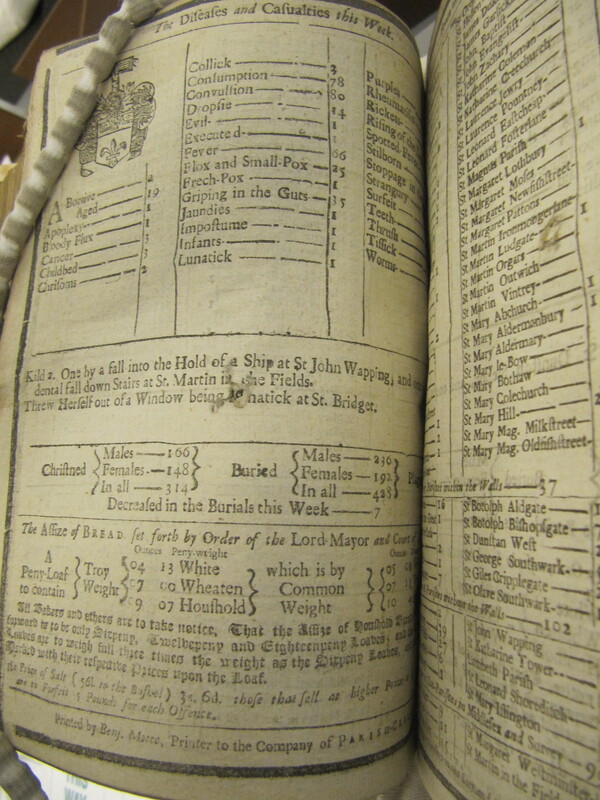 The Diseases and Casualties this Week.
ABortive 2
Aged 19
Apoplexy 1
Bloody Flux 1
Cancer 3
Childbed 3
Chrisoms 2
Collick 3
Consumption 78
Convulsion 80
Dropsie 14
Evil 1
Executed
Fever 66
Flox and Small-Pox 25
French-Pox 1
Griping in the Guts 35
Jaundies 1
Impostume 1
Infants 1
Lunatick 1
Purples
Rheumatism
Rickets
Rising of the
Spotted
Stilborn
Stoppage in
Strangury
Surfeit
Teeth
Thrush
Tissick
Worms
Kild 2. One by a fall into the Hold of a Ship at St John Wapping, and
dental fall down Stairs at St. Martin in the Fields.
Threw Herself out of a Window being Lunatick at St. Bridget.
Christned Males 166
Females 148
In all 314
Buried Males 236
Females 192
In all 428
Decreased in the Burials this Week 7
The Assize of BREAD set forth by Order of the Lord-Mayor and Court of
Ounces Peny-weight
A Peny-Loaf to contain Troy Weight
04 13 White
07 00 Wheaten
9 07 Houshold
which is by Common Weight
05
07
10
All Bakers and others are to take notice, That the Assize of Houshold Bread
forward is to be only Sixpeny, Twelvepeny and Eighteenpeny Loaves; and
Loaves are to weigh full three times the weight as the Sixpeny Loaves, and
Marked with their respective Prices upon the Loaf.
the Price of Salt (56l. to the Bushel) 3s. 6d. those that sell at higher
are to forfeit 5 Pounds for each Offence.
Printed by Benj. Motte, Printer to the Company of PARISH
St John Zachary
St Katharine Coleman
St Katharine Creechurch
St Laurence Jewry
St Laurence Pountney
St Leonard Eastcheap
St Leonard Fosterlane
St Magnus Parish
St Margaret Lothbury
St Margaret Moses
St Margaret Newfishstreet
St Margaret Pattons
St Martin Ironmongerlane
St Martin Ludgate
St Martin Orgars
St Martin Outwich
St Martin Vintrey
St Mary Abchurch
St Mary Aldermanbury
St Mary Aldermary
St Mary le-Bow
St Mary Bothaw
St Mary Colechurch
St Mary Hill
St Mary Mag. Milkstreet
St Mary Mag. Oldfishstreet
within the Walls 37
St Botolph Aldgate
St Botolph Bishopsgate
St Dunstan West
St George Southwark
St Giles Cripplegate
St Olave Southwark
without the Walls 102
St John Wapping
St Katharine Tower
Lambeth Parish
St Leonard Shoreditch
St Mary Islington
in Middlesex and Surrey
St Margaret Westminster
St Martin in the Field